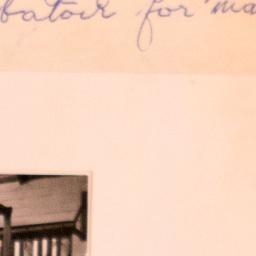 batoir for ma